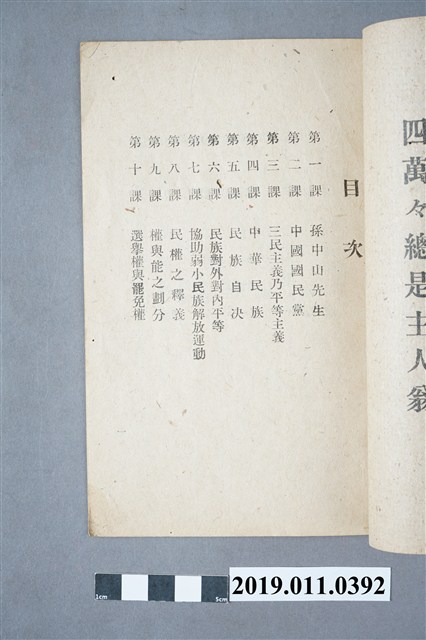 四萬々總是主人翁
目次
第一課 孫中山先生
第二課 中國國民黨
第三課 三民主義乃平等主義
第四課 中華民族
第五課 民族自决
第六課 民族對外對內平等
第七課 協助弱小民族解放運動
第八課 民權之釋義
第九課 權與能之劃分
第十課 選舉權與罷免權
1cm
5cm
2019.011.0392